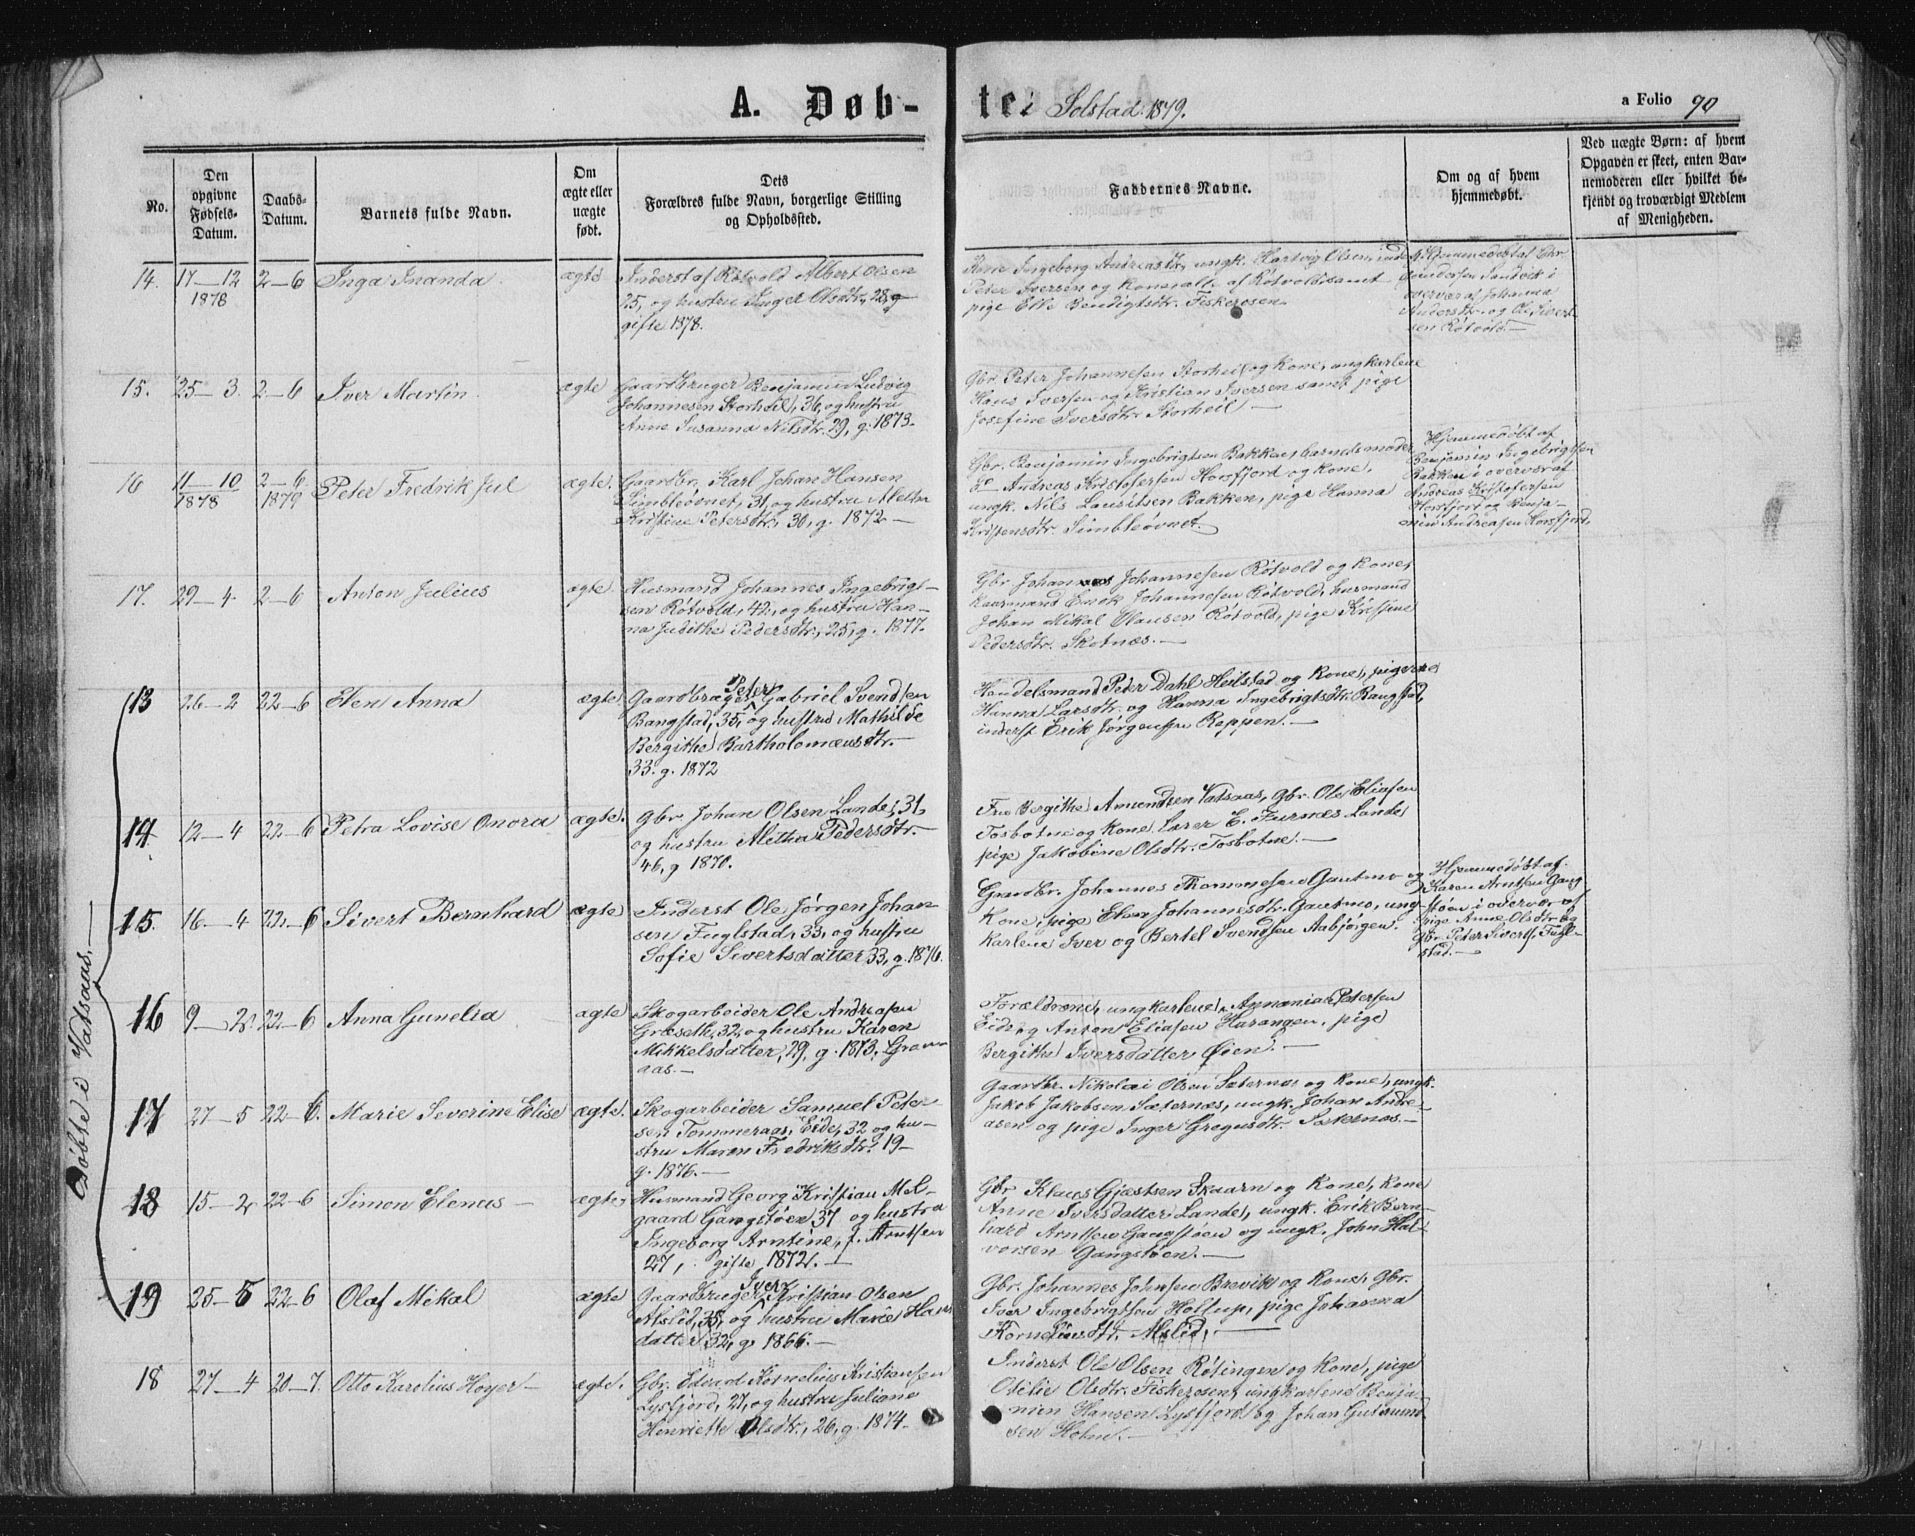 A. Døbte i Solstad 1879.
a Folio 90
No.
Den opgivne Fødsels-Datum.
Daabs-Datum.
Barnets fulde Navn.
Om ægte eller uægte født.
Dets Forældres fulde Navn, borgerlige Stilling og Opholdssted.
Faddernes Navne.
Om og af hvem hjemmedøbt.
Ved uægte Børn: af hvem Opgaven er skeet, enten Barnemoderen eller hvilket bekjendt og troværdigt Medlem af Menigheden.
14. 17–12 1878 2–6 Inga Inanda ægte
Inderst af Røtvold Albert Olsen
25, og hustru Inger Olsdtr, 28, g
gifte 1878.
Kone Ingeborg Andreasdtr, ungk. Hartvig Olsen,
Peter Iversen og Kone alle af Røtvold samt
pige Elle Bendigtsdtr. Fiskerosen
Hjemmedøbt af Chr.
Andersen Sandvik i
overvær af Johanna
Andersdtr. og Ole Sivert-
sen Røtvold.—
15. 25–3 2–6 Iver Martin ægte
Gaardbruger Benjamin Ludvig
Johannesen Storheil, 36, og hustru
Anne Susanna Nilsdtr. 29, g. 1873.
Gbr. Peter Johannesen Storheil og Kone, ungkarlene
Hans Iversen og Kristian Iversen samt pige
Josefine Iversdtr. Storheil —
16 11–10 1878 2–6 1879 Peter Fredrik Jul ægte.
Gaardbr. Karl Johan Hansen
Simbleøvnet, 31, og hustru Aletta
Kristine Petersdtr, 30, g. 1872 —
Gbr. Benjamin Ingebrigtsen Bakken, barnets moder
Andreas Kristofersen Horsfjord og Kone,
ungk. Nils Lauritsen Bakken, pige Hanna
Kristensdtr. Simbleøvnet.
Hjemmedøbt af
Benjamin Ingebrigtsen
Bakken i overvær af
Andreas Kristofersen
Horsfjord og Benja-
min Andreasen Horsfjord.
17. 29–4. 2–6 Anton Julius ægte.
Husmand Johannes Ingebrigt-
sen Røtvold, 42, og hustru Han-
na Judithe Pedersdtr, 25, g. 1877.
Gbr Johannes Johannesen Røtvold og Kone,
husmand Enok Johannesen Røtvold, husmand
Johan Mikal Olausen Røtvold, pige Kristine
Pedersdtr. Skotnæs.—
Døbte i Vatsaas.—
13 26–2 22–6 Elen Anna ægte.
Gaardbruger Peter Gabriel Svendsen
Bangstad, 35, og hustru Mathilde
Bergithe Bartholomæusdtr.
33. g. 1872
Handelsmand Peder Dahl Heilstad og Kone, pigerne
Hanna Larsdtr. og Hanna Ingebrigtsdtr. Bangstad,
inderst Erik Jørgensen Reppen.—
14. 12–4 22–6 Petra Lovise Onora ægte.
Gbr. Johan Olsen Lande, 31,
og hustru Alethe Pedersdtr.
46, g 1870.
Fru Bergithe Amundsen Vatsaas, Gbr. Ole Eliasen
Tosbotn og Kone, Lærer E. Furnes Lande
pige Jakobine Olsdtr. Tosbotn.—
15. 16–4 22–6 Sivert Bernhard ægte
Inderst Ole Jørgen Johan-
sen Fuglstad, 33, og hustru
Sofie Sivertsdatter 33, g. 1876.
Gaardbr. Johannes Thommesen Gautmo og
Kone, pige Elen Johannesdtr. Gautmo, ung-
karlene Iver og Bertel Svendsen Aabjørgen.
Hjemmedøbt af
Karen Arntsen Gang-
støen i overvær af
pige Anne Olsdtr og
Gbr. Peter Siverts. Fugl-
stad.—
16 9–2 22–6 Anna Gunelia ægte
Skogarbeider Ole Andreasen
Græseth, 32, og hustru Karen
Mikkelsdatter, 29, g. 1873,
aas.—
Forældrene, ungkarlene Annanias Petersen
Eide og Anton Eliasen Harangen, pige
Bergithe Iversdatter Øien.—
17 27–5 22–6. Marie Severine Elise ægte.
Skogarbeider Samuel Peter-
sen Tommeraas, Eide, 32 og hu-
stru Maren Fredriksdtr. 19 –
g. 1876.—
Gaardbr. Nikolai Olsen Sæternæs og Kone, ungk.
Jakob Jakobsen Sæternæs, ungk. Johan Andre-
asen og pige Inger Gregusdtr Sæternæs.—
18 15–2 22–6 Simon Elenus — ægte.
Husmand Georg Kristian Mel-
gaard Gangstøen 37 og hustru
Ingeborg Arntine, f. Arntsen
27, gifte 1872.—
Gbr Klaus Gjæstsen Skaarn og Kone, Kone
Anne Iversdatter Lande, ungk. Erik Bern-
hard Arntsen Gangstøen og ungk. John Hal-
vorsen Gangstøen.—
19 25–5 22–6 Olaf Mikal ægte
Gaardbruger Iver Kristian Olsen
Alslid, 35, og hustru Marie Hans
datter 32, g. 1866.—
Gbr. Johannes Johnsen Brevik og Kone, Gbr.
Iver Ingebrigtsen Holtup, pige Johanna
Korneliusdtr. Alslid.—
18 27–4 20–7. Otto Karolius Hoyer — ægte.
Gbr. Edvard Kornelius Kristiansen
Lysfjord, 27, og hustru Juliane
Henriette Olsdtr., 26, g. 1874.
Inderst Ole Olsen Røtingen og Kone, pige
Otilie Olsdtr. Fiskerosen, ungkarlene Benja-
min Hansen Lysfjord og Johan Gutormd
sen Holm.—